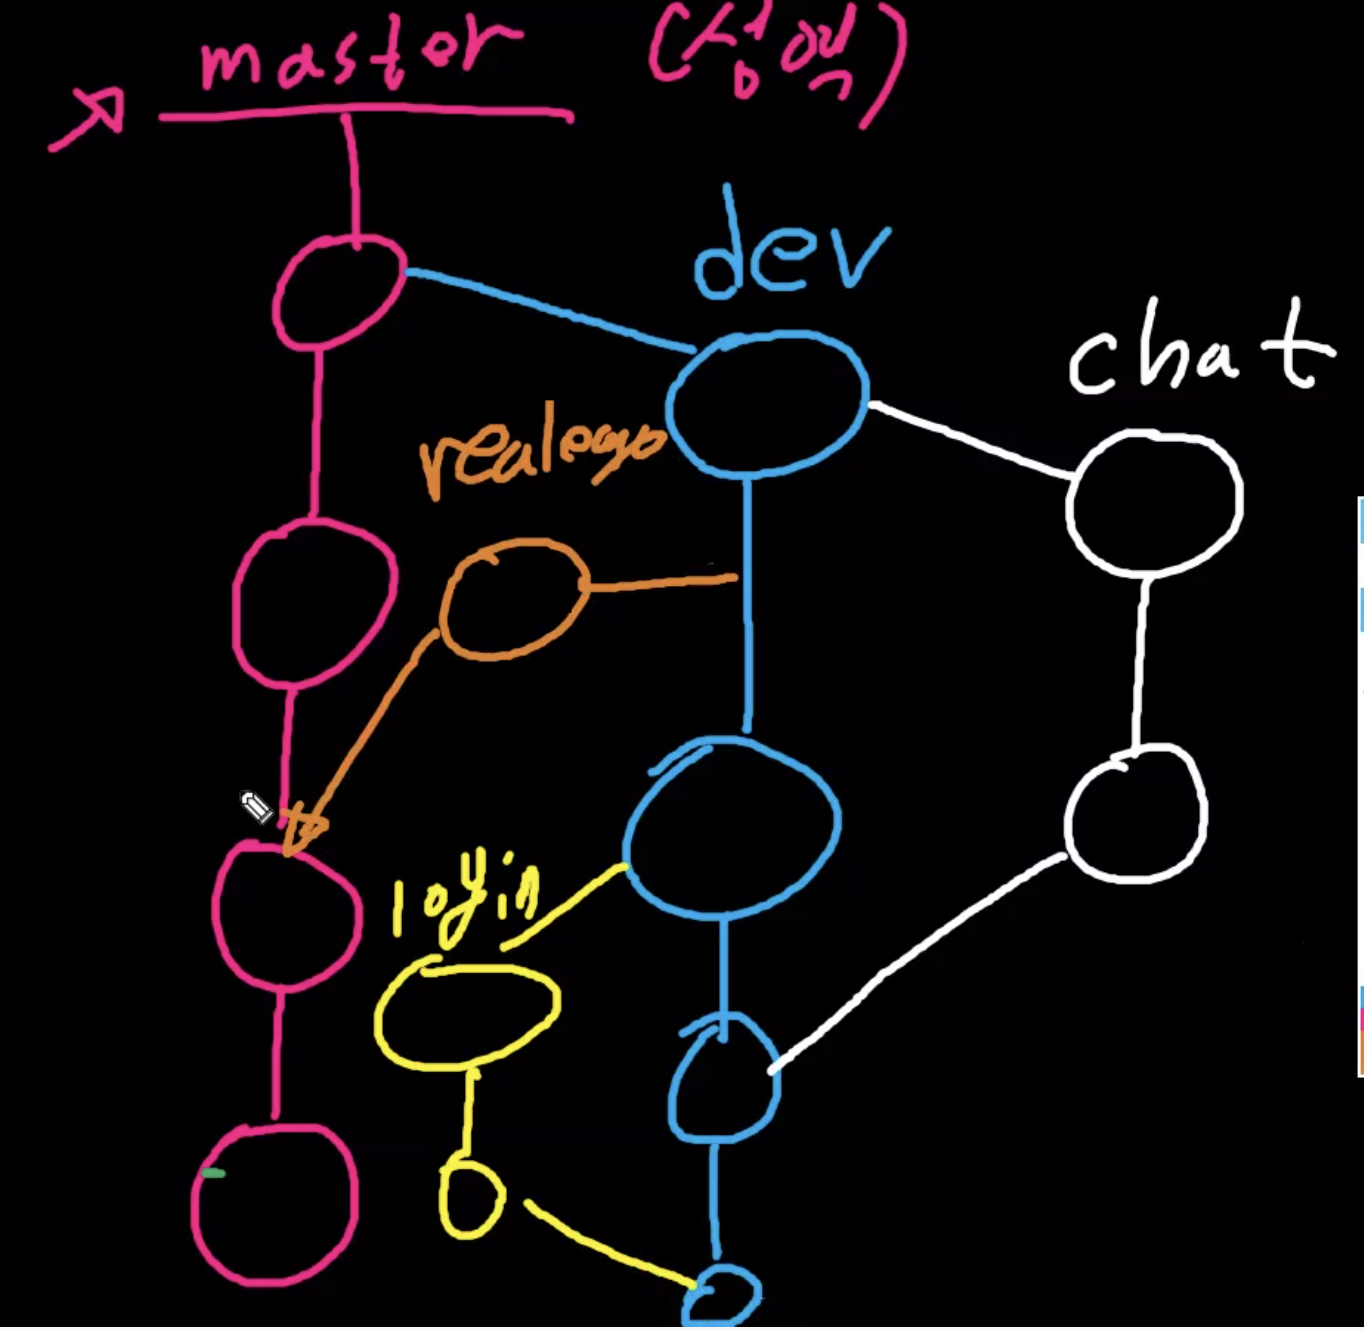 master
dev
chat
realego
login